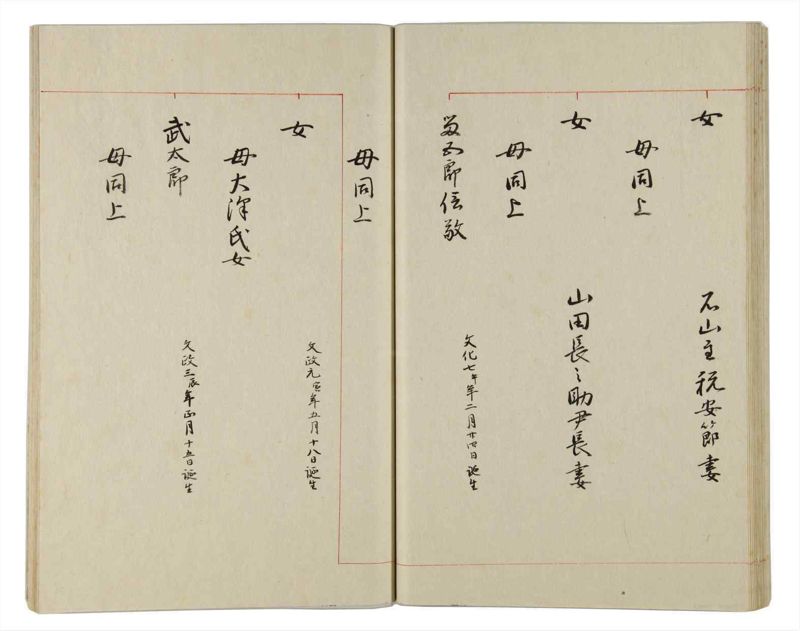 女
石山主税安節妻
母同上
女
山田長之助尹長妻
母同上
五郎信敬
文化七午年二月廿四日誕生
母同上
女
文政元寅年五月十八日誕生
母大澤氏女
武太郎
文政三辰年正月十五日誕生
母同上